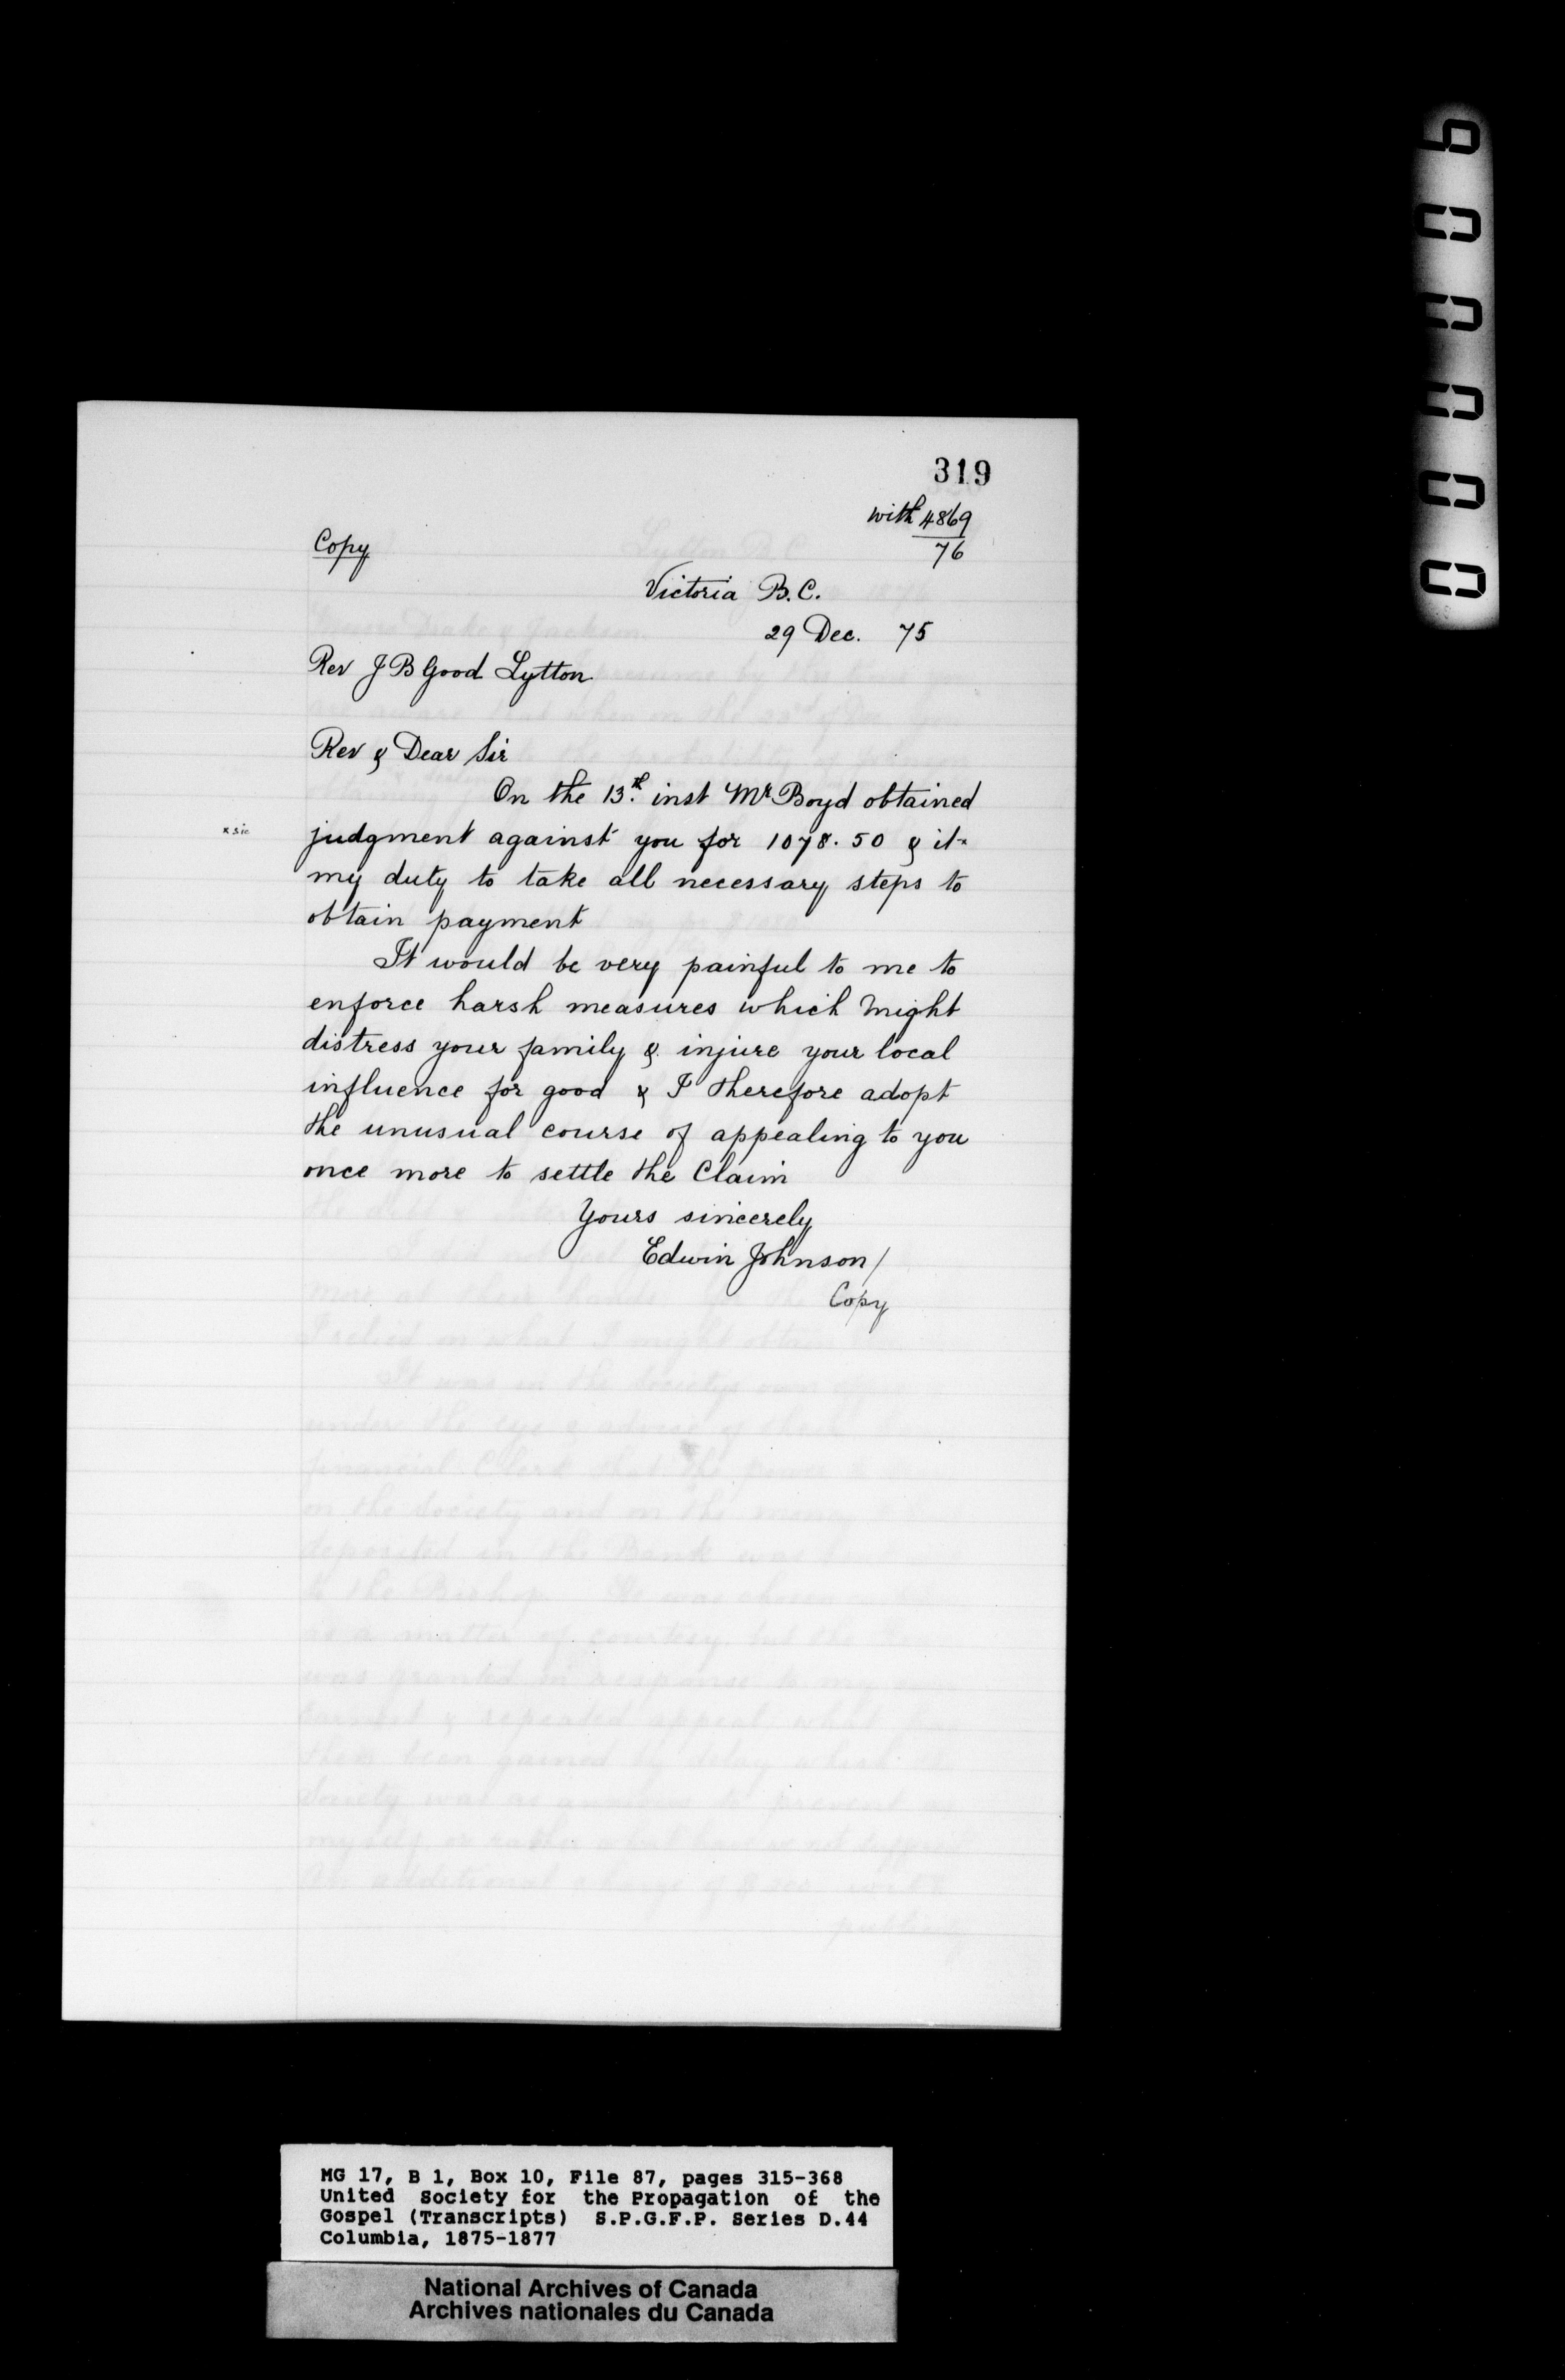 319
with 4869
76
Copy
Victoria B.C.
29 Dec. 75
Rev J B Good Lytton
Rev & Dear Sir
On the 13th. inst Mr Boyd obtained
x sic judgment against you for 1078.50 & it x
my duty to take all necessary steps to
obtain payment
It would be very painful to me to
enforce harsh measures which might
distress your family & injure your local
influence for good & I therefore adopt
the unusual course of appealing to you
once more to settle the Claim
Yours sincerely
Edwin Johnson /
Copy
MG 17, B 1, Box 10, File 87, pages 315-368
United Society for the Propagation of the
Gospel (Transcripts) S.P.G.F.P. Series D.44
Columbia, 1875-1877
National Archives of Canada
Archives nationales du Canada